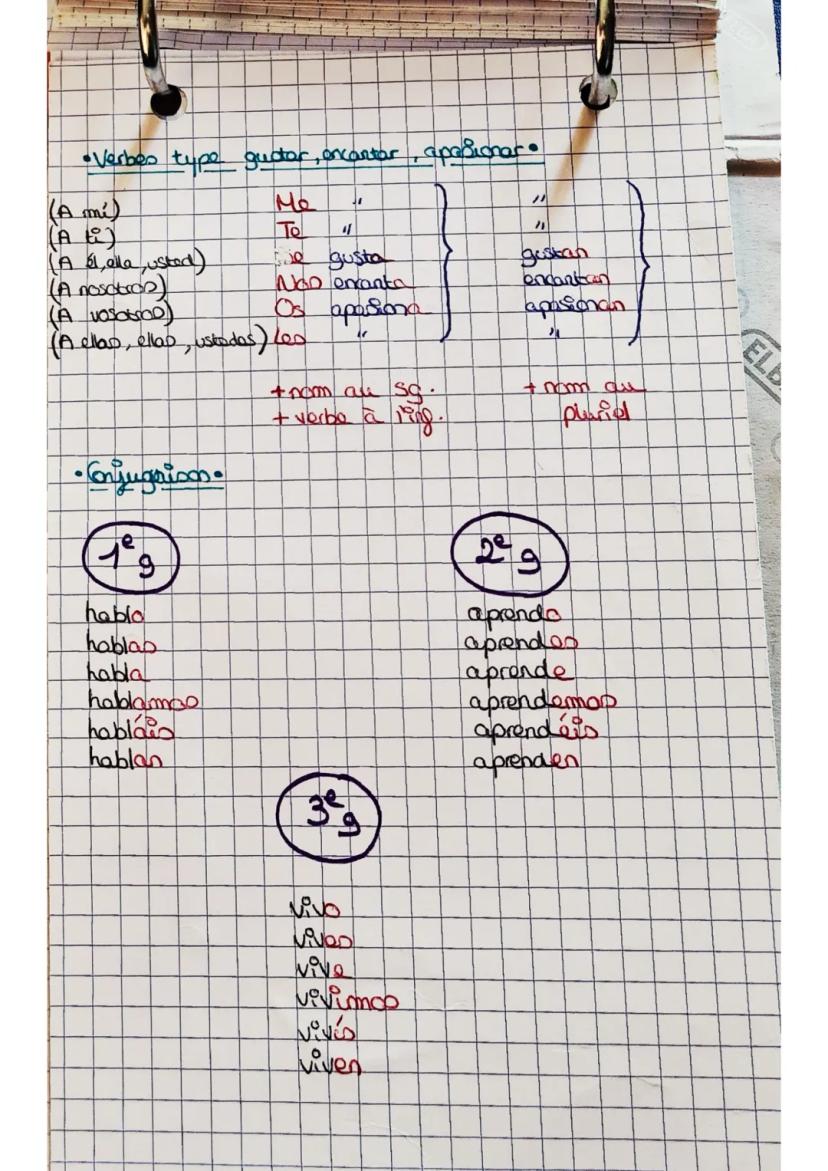 •Verbes type gustar, encantar, apasionar•
(A mí) Me " "
(A ti) Te " "
(A él, ella, usted) Le gusta gustan
(A nosotros) Nos encanta encantan
(A vosotros) Os apasiona apasionan
(A ellos, ellas, ustedes) Les " "
+ nom au sg. + nom au
+ verbe à l'inf. pluriel
•Conjugaison•
1e g 2e g
hablo aprendo
hablas aprendes
habla aprende
hablamos aprendemos
habláis aprendéis
hablan aprenden
3e g
vivo
vives
vive
vivimos
vivís
viven
ELBA